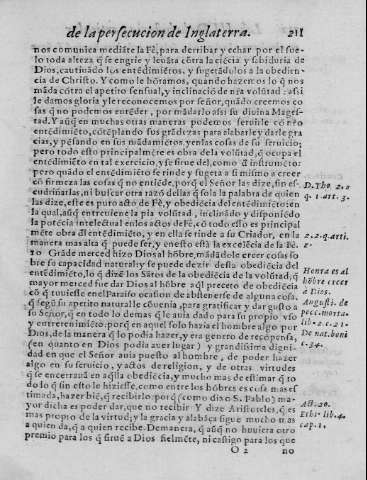 de la persecucion de Inglaterra. 211
nos comunica mediãte la Fè, para derribar y echar por el sue-
lo toda alteza q̃ se engrie y leuãta cõtra la ciẽcia y sabiduria de
Dios, cautiuãdo los entẽdimiẽtos, y sugetãdolos a la obediẽ-
cia de Christo. Y como le hõramos, quando hazemos lo q̃ nos
mãda cõtra el apetito sensual, y inclinaciõ de nr̃a volũtad: assi
le damos gloria y le reconocemos por señor, quãdo creemos co
sas q̃ no podemos entẽder, por mãdarlo assi su diuina Mages-
tad. Y aũq̃ en muchas otras maneras podemos seruirle cõ nr̃o
entẽdimiẽto, cõtẽplando sus grãdezas para alabarle y darle gra
cias, y pẽsando en sus mãdamiẽtos y en las cosas de su seruicio;
pero todo esto principalmẽte es obra dela volũtad, q̃ ocupa el
entẽdimiẽto en tal exercicio, y se sirue del, como de instrumẽto:
pero quãdo el entẽdimiẽto se rinde y sugeta a si mismo a creer
cõ firmeza las cosas q̃ no entiẽde, porq̃ el Señor las dize, sin es-
cudriñarlas, ni buscar otra razõ dellas q̃ sola la palabra de quien
las dize, este es puro acto de Fè, y obediẽcia del entẽdimiẽto: en
la qual, aũq̃ entreuiene la pia volũtad, inclinãdo y disponiẽdo
la potẽcia intelectual en los actos desse, cõ todo esso es principal
mẽte obra del entẽdimiẽto, y en ella se rinde a su Criador, en la
manera mas alta q̃ puede ser, y en esto està la excelẽcia de la Fè.
Grãde merced hizo Dios al hõbre, mãdãdole creer cosas so
bre su capacidad natural y se puede dezir desta obediẽcia del
entẽdimiẽto, lo q̃ dizẽ los Sãtos de la obediẽcia de la volũtad, q̃
mayor merced fue dar Dios al hõbre aql̃ preceto de obediẽcia
cõ q̃ tuuiesse en el Paraiso ocasion de abstenerse de alguna cosa,
q̃ segũ su apetito natural le cõuenia, para gratificar y dar gusto a
su Señor, q̃ en todo lo demas q̃ le auia dado para su propio vso
y entretenimiẽto: porq̃ en aquel solo hazia el hombre algo por
Dios, de la manera q̃ lo podia hazer, y era genero de recõpensa,
(en quanto en Dios podia auer lugar) y grandissima digni-
dad en que el Señor auia puesto al hombre, de poder hazer
algo en su seruicio, y actos de religion, y de otras virtudes
q̃ se encerrauã en aq̃lla obediẽcia, y mucho mas de estimar q̃ to
do lo q̃ sin esto le hiziesse, como entre los hõbres es cosa mas es
timada, hazer biẽ, q̃ recibirlo: porq̃ (como dixo S. Pablo) ma-
yor dicha es poder dar, que no recibir Y dize Aristoteles, q̃ es
mas propio de la virtud; y la gracia y alabãça sigue mucho mas
a quien da, q̃ a quien recibe. Demanera, q̃ aũq̃ no huuiera caro
premio para los q̃ siruẽ a Dios fielmẽte, ni castigo para los que
O 2 no
D. Tho. 2.2
q. 1 art. 3.
2.2.q.arti.
2.
Honra es al
hõbre crece
e Dios.
Augusti. de
pecc.morta.
lib.2.c.21.
De nat.boni
c.34.
Act. 20.
Ethi. lib.4.
cap.1.